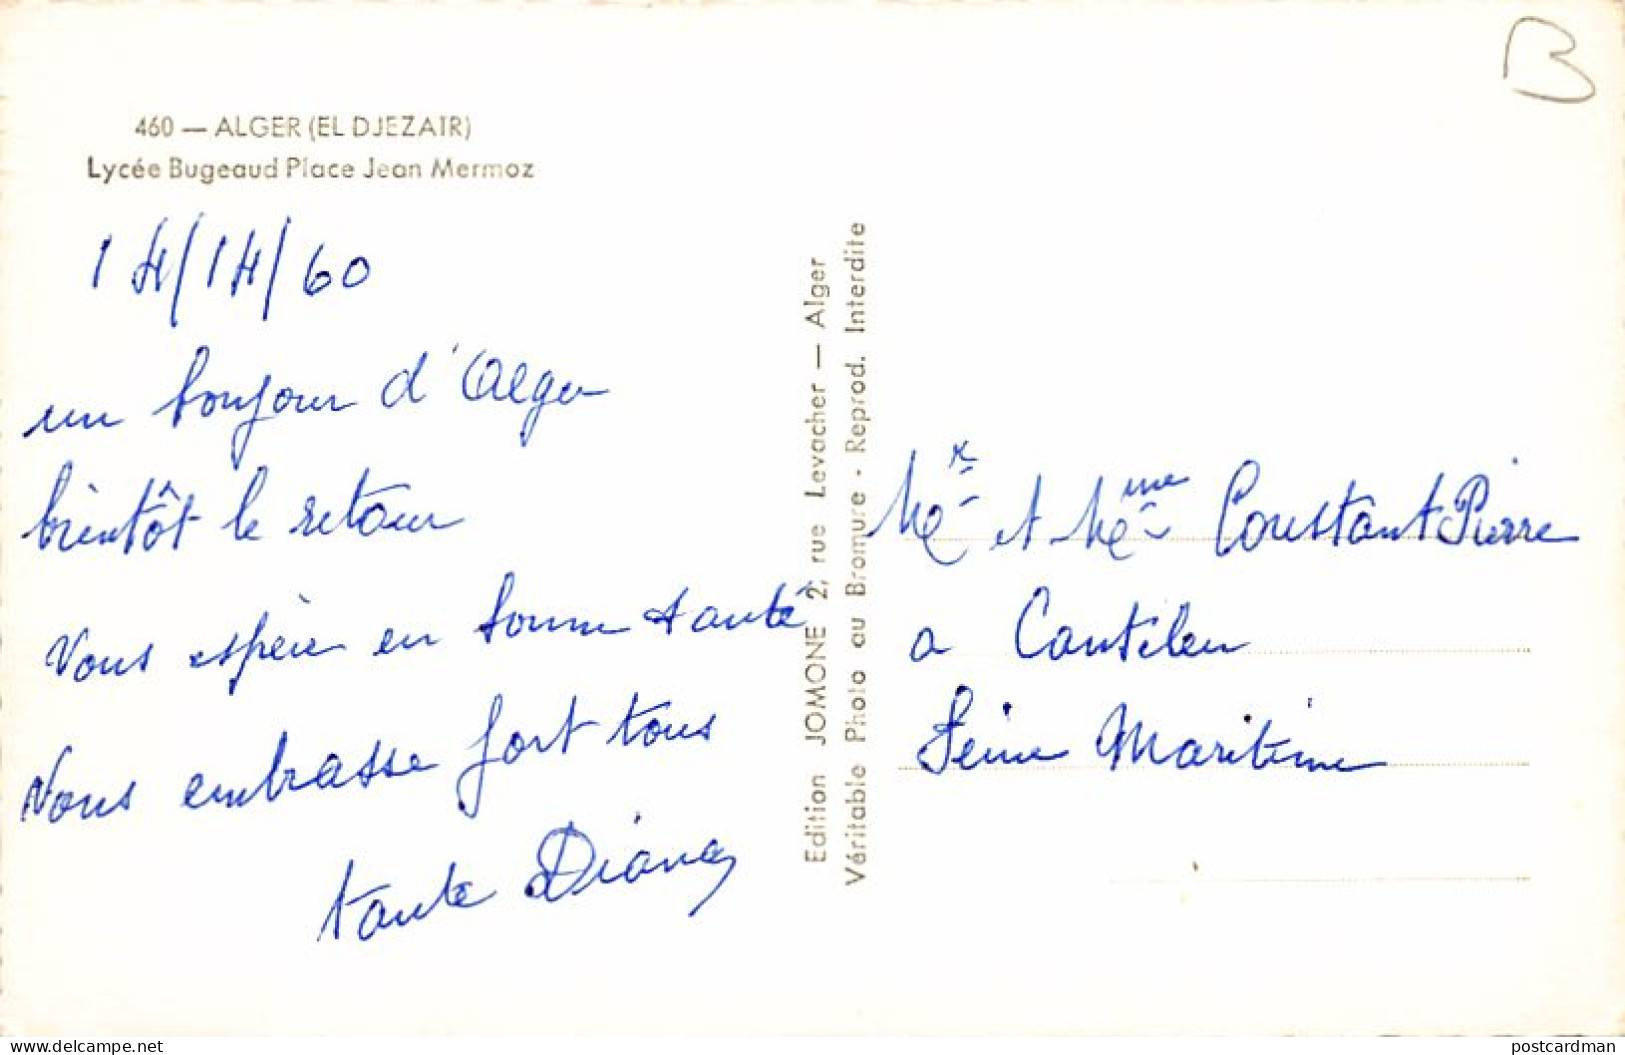 B
460 — ALGER (EL DJEZAIR)
Lycée Bugeaud Place Jean Mermoz
14/14/60
un bonjour d'Alger
bientôt le retour
Vous espère en bonne santé
Vous embrasse fort tous
tante Diana
Edition JOMONE 2, rue Levacher — Alger
Véritable Photo au Bromure - Reprod. Interdite
Mr et Mme Constant Pierre
a Canteleu
Seine Maritime
delcampe.net
postcardman